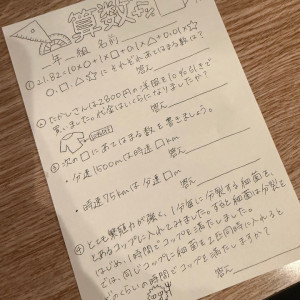 算数
年 組 名前
① 21.82=10×○+1×□+0.1×△+0.01×☆
○.□.△.☆にそれぞれあてはまる数は?
答え
② たかしさんは2800円の洋服を10%引きで
買いました。代金はいくらになりましたか?
答え
③ 次の□にあてはまる数を書きましょう。
・分速1500mは時速□km
答え
・時速75kmは分速□m
答え
④ とても繁殖力が強く、1分毎に分裂する細菌を、
とあるコップに入れてみました。すると細菌は分裂を
はじめ、1時間でコップを満たしました。
では、同じコップに細菌を2匹同時に入れると
どのくらいの時間でコップを満たしますか?
答え